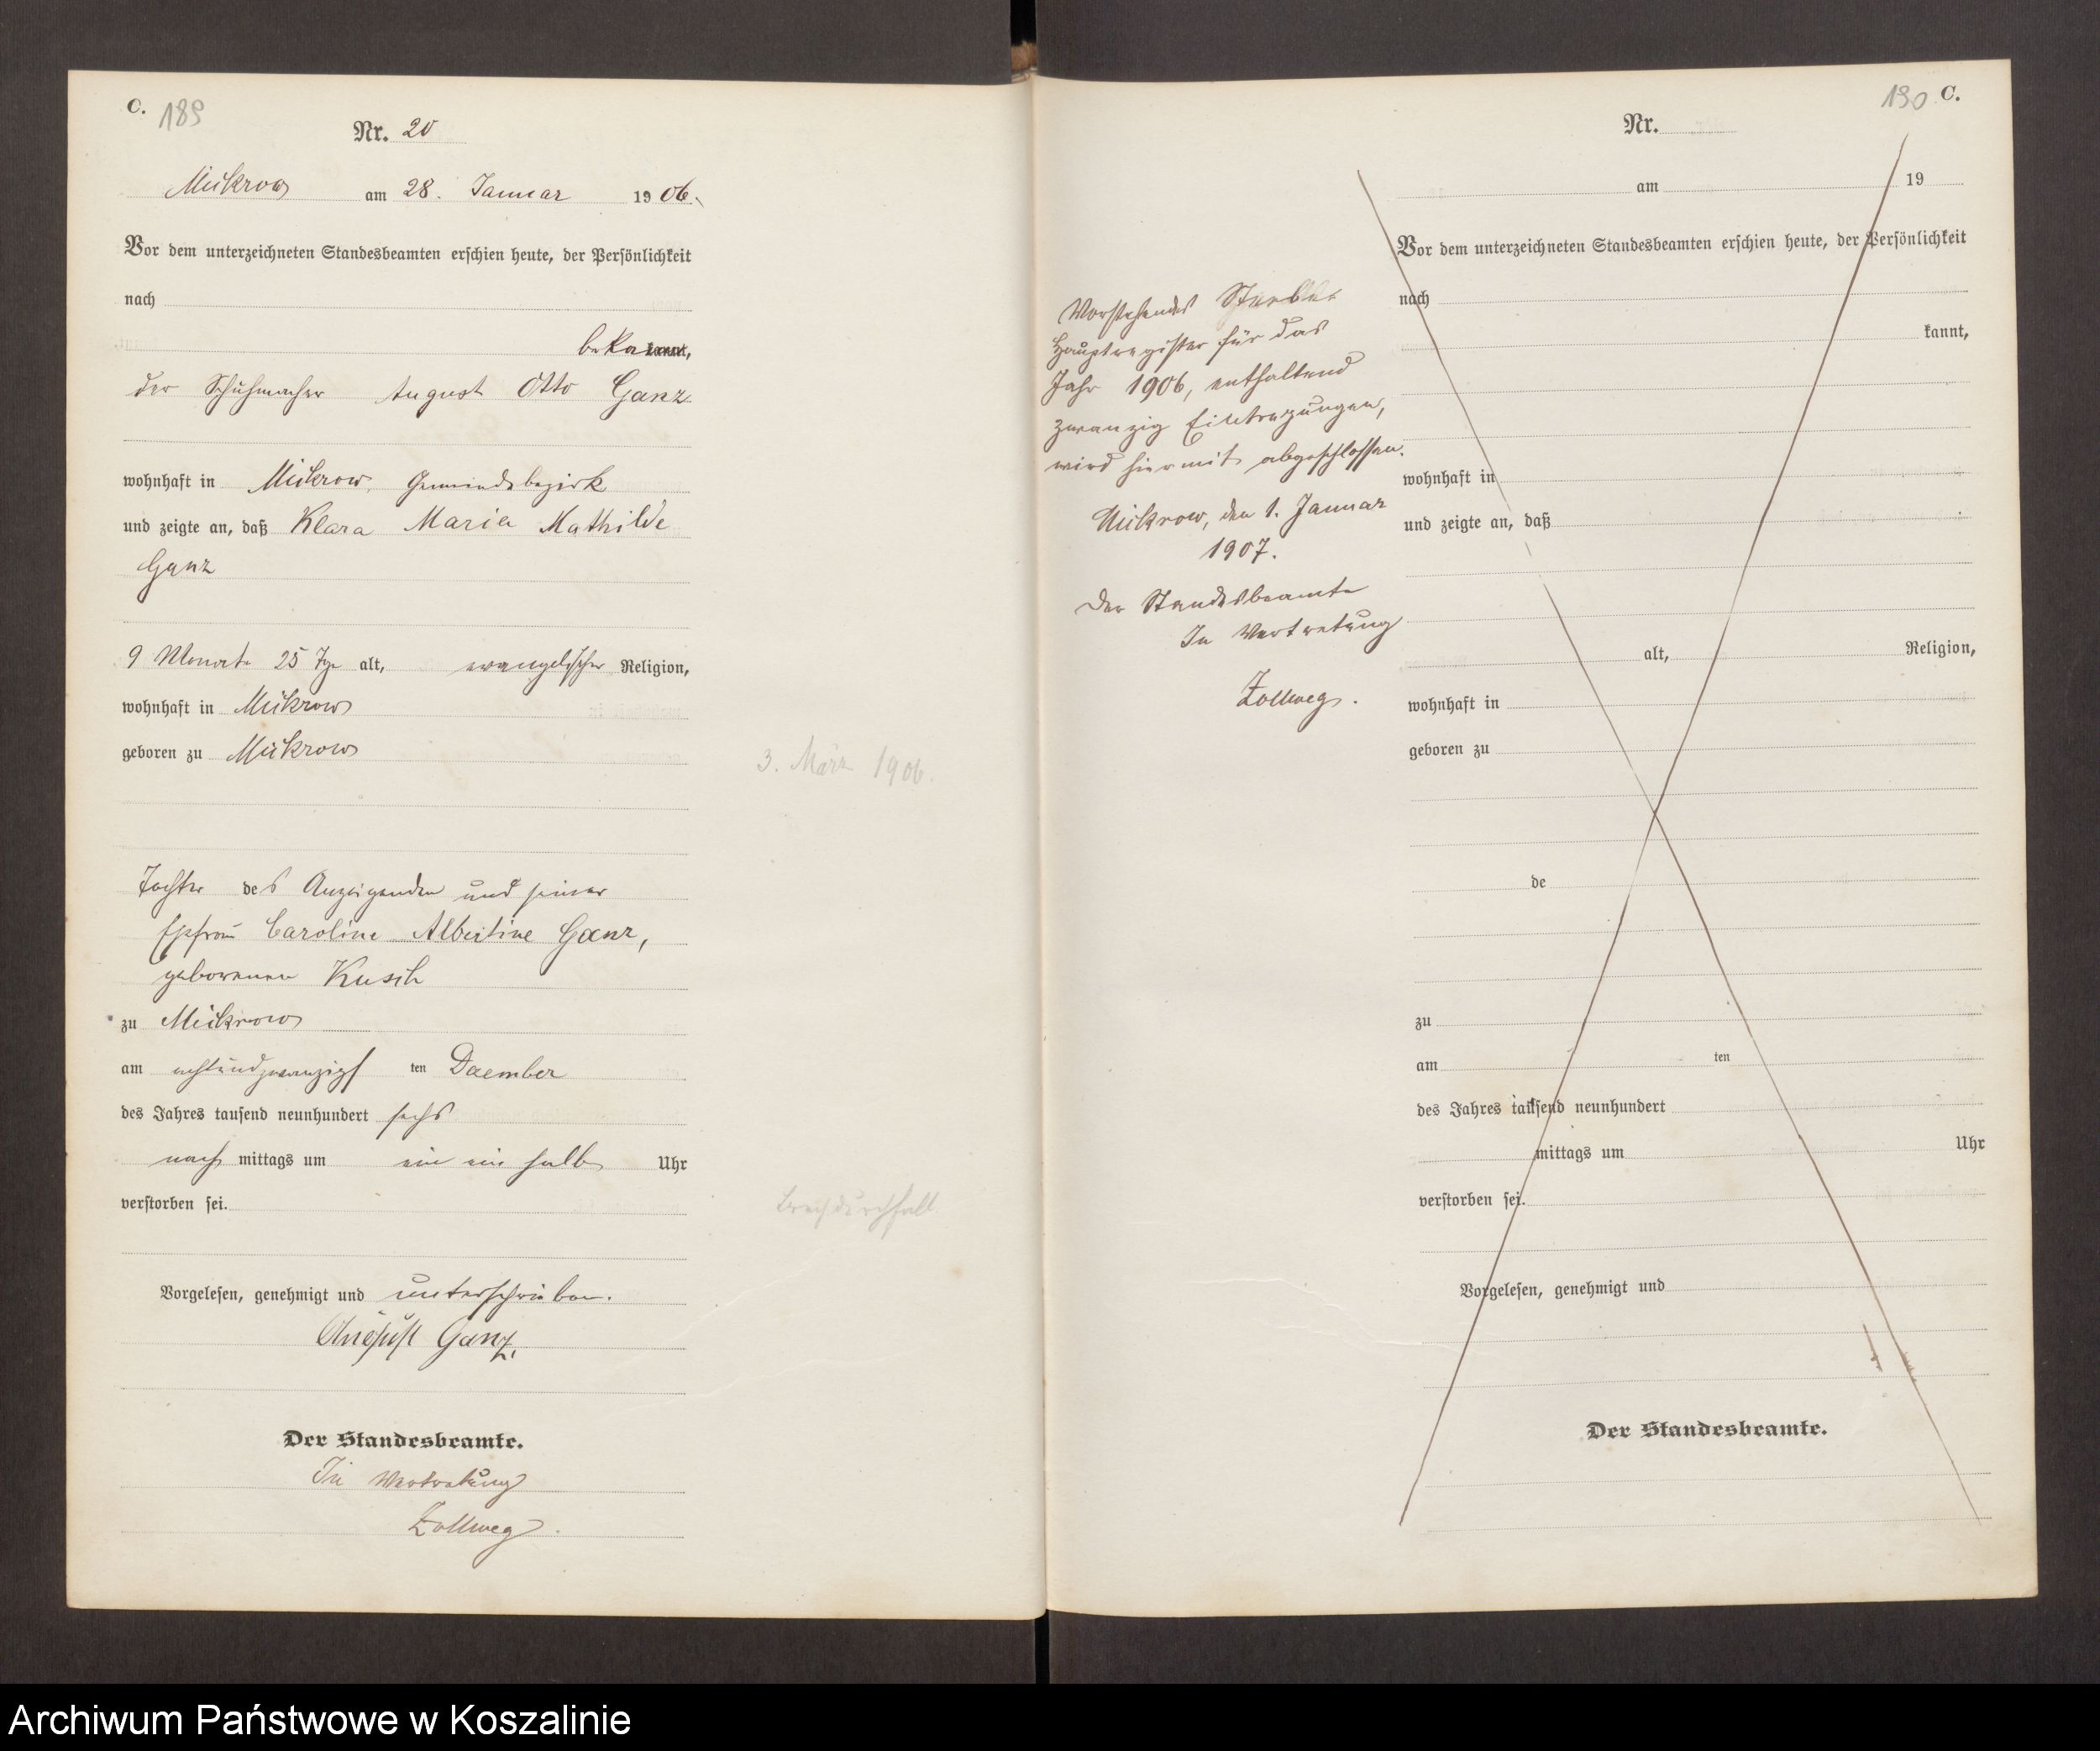 C. 189
Nr. 20
Mickrow am 28. Januar 1906.
Vor dem unterzeichneten Standesbeamten erschien heute, der Persönlichkeit
nach
bekannt,
der Schuhmacher August Otto Ganz
wohnhaft in Mickrow, Gemeindebezirk
und zeigte an, daß Klara Maria Mathilde
Ganz
9 Monate 25 Tge alt, evangelischer Religion,
wohnhaft in Mickrow
geboren zu Mickrow
3. März 1906.
Tochter des Anzeigenden und seiner
Ehefrau Caroline Albertine Ganz,
geborenen Kusch
zu Mickrow
am achtundzwanzigsten Dezember
des Jahres tausend neunhundert sechs
nachmittags um ein ein halb Uhr
verstorben sei.
Brechdurchfall
Vorgelesen, genehmigt und unterschrieben.
August Ganz.
Der Standesbeamte.
In Vertretung
Zollweg.
190 C.
Nr.
am 19
Vor dem unterzeichneten Standesbeamten erschien heute, der Persönlichkeit
nach
kannt,
wohnhaft in
und zeigte an, daß
alt, Religion,
wohnhaft in
geboren zu
de
zu
am ten
des Jahres tausend neunhundert
mittags um Uhr
verstorben sei.
Vorgelesen, genehmigt und
Der Standesbeamte.
Vorstehendes Sterbe
Hauptregister für das
Jahr 1906, enthaltend
zwanzig Eintragungen,
wird hiermit abgeschlossen.
Mickrow, den 1. Januar
1907.
Der Standesbeamte
In Vertretung
Zollweg.
Archiwum Państwowe w Koszalinie